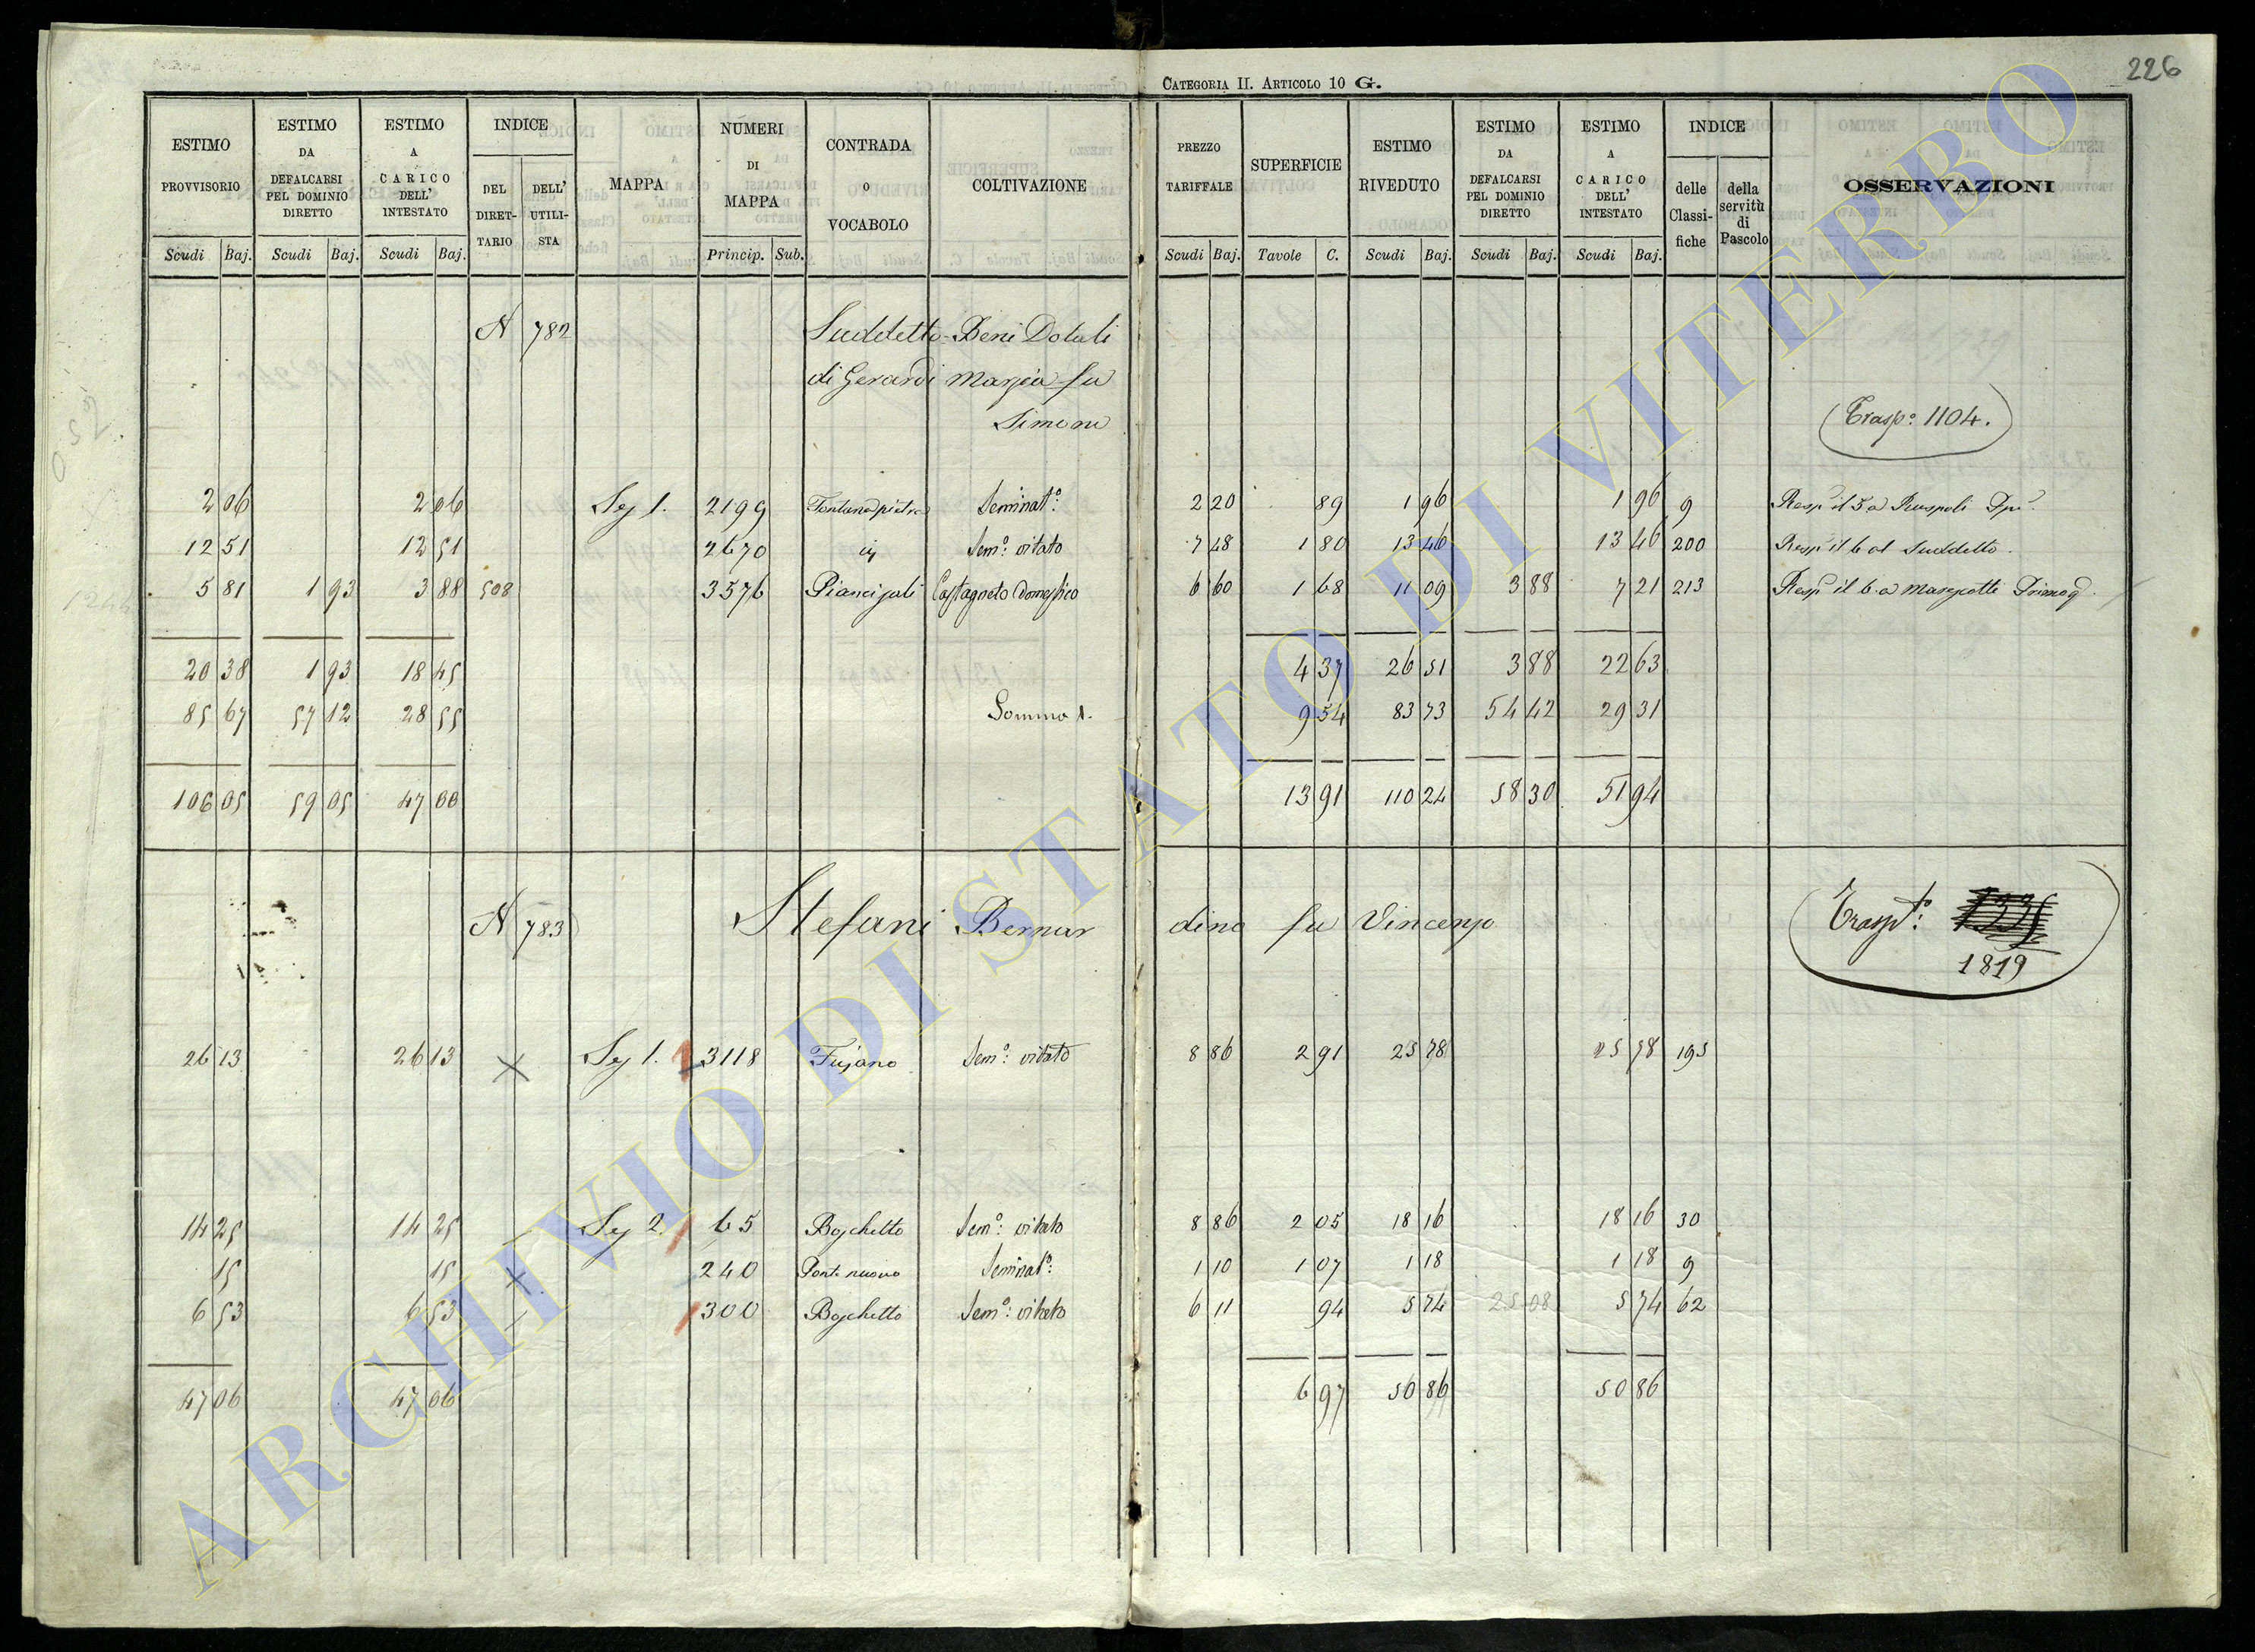 CATEGORIA II. ARTICOLO 10 G.
226
ESTIMO PROVVISORIO Scudi Baj. | ESTIMO DA DEFALCARSI PEL DOMINIO DIRETTO Scudi Baj. | ESTIMO A CARICO DELL' INTESTATO Scudi Baj. | INDICE DEL DIRETTARIO DELL' UTILISTA | MAPPA | NUMERI DI MAPPA Princip. Sub. | CONTRADA O VOCABOLO | COLTIVAZIONE | PREZZO TARIFFALE Scudi Baj. | SUPERFICIE Tavole C. | ESTIMO RIVEDUTO Scudi Baj. | ESTIMO DA DEFALCARSI PEL DOMINIO DIRETTO Scudi Baj. | ESTIMO A CARICO DELL' INTESTATO Scudi Baj. | INDICE delle Classifiche della servitù di Pascolo | OSSERVAZIONI
N 782 Suddetto - Beni Dotali
di Gerardi Marzia fu
Simone
(Trasp.o: 1104.)
2 06 2 06 Sez 1. 2199 Seminat.o: 2 20 89 1 96 1 96 9 Resp il 5 a Ruspoli
12 51 12 51 2670 Sem.o: vitato 7 48 1 80 13 46 13 46 200 Resp il 6 al Suddetto.
5 81 1 93 3 88 508 3576 Piancisali Castagneto Domestico 6 60 1 68 11 09 3 88 7 21 213 Resp il 6 a
20 38 1 93 18 45 4 37 26 51 3 88 22 63
85 67 57 12 28 55 Somma 1. 9 54 83 73 54 42 29 31
106 05 59 05 47 00 13 91 110 24 58 30 51 94
N 783 Stefani Bernardino fu Vincenzo
Trasp.to:
1819
26 13 26 13 X Sez 1. 3118 Fujano Sem.o: vitato 8 86 2 91 25 78 25 78 195
14 25 14 25 Sez 2. 65 Boschetto Sem.o: vitato 8 86 2 05 18 16 18 16 30
15 15 X 240 Ponte nuovo Seminat.o: 1 10 1 07 1 18 1 18 9
6 53 6 53 300 Boschetto Sem.o: vitato 6 11 94 5 74 25 08 5 74 62
47 06 47 06 6 97 50 86 50 86
ARCHIVIO DI STATO DI VITERBO